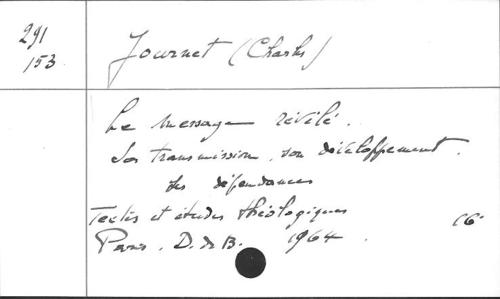 291
153
Journet (Charles)
Le message révélé.
Sa transmission, son développement.
Ses dépendances
Textes et études théologiques
16°
Paris. D. de B. 1964